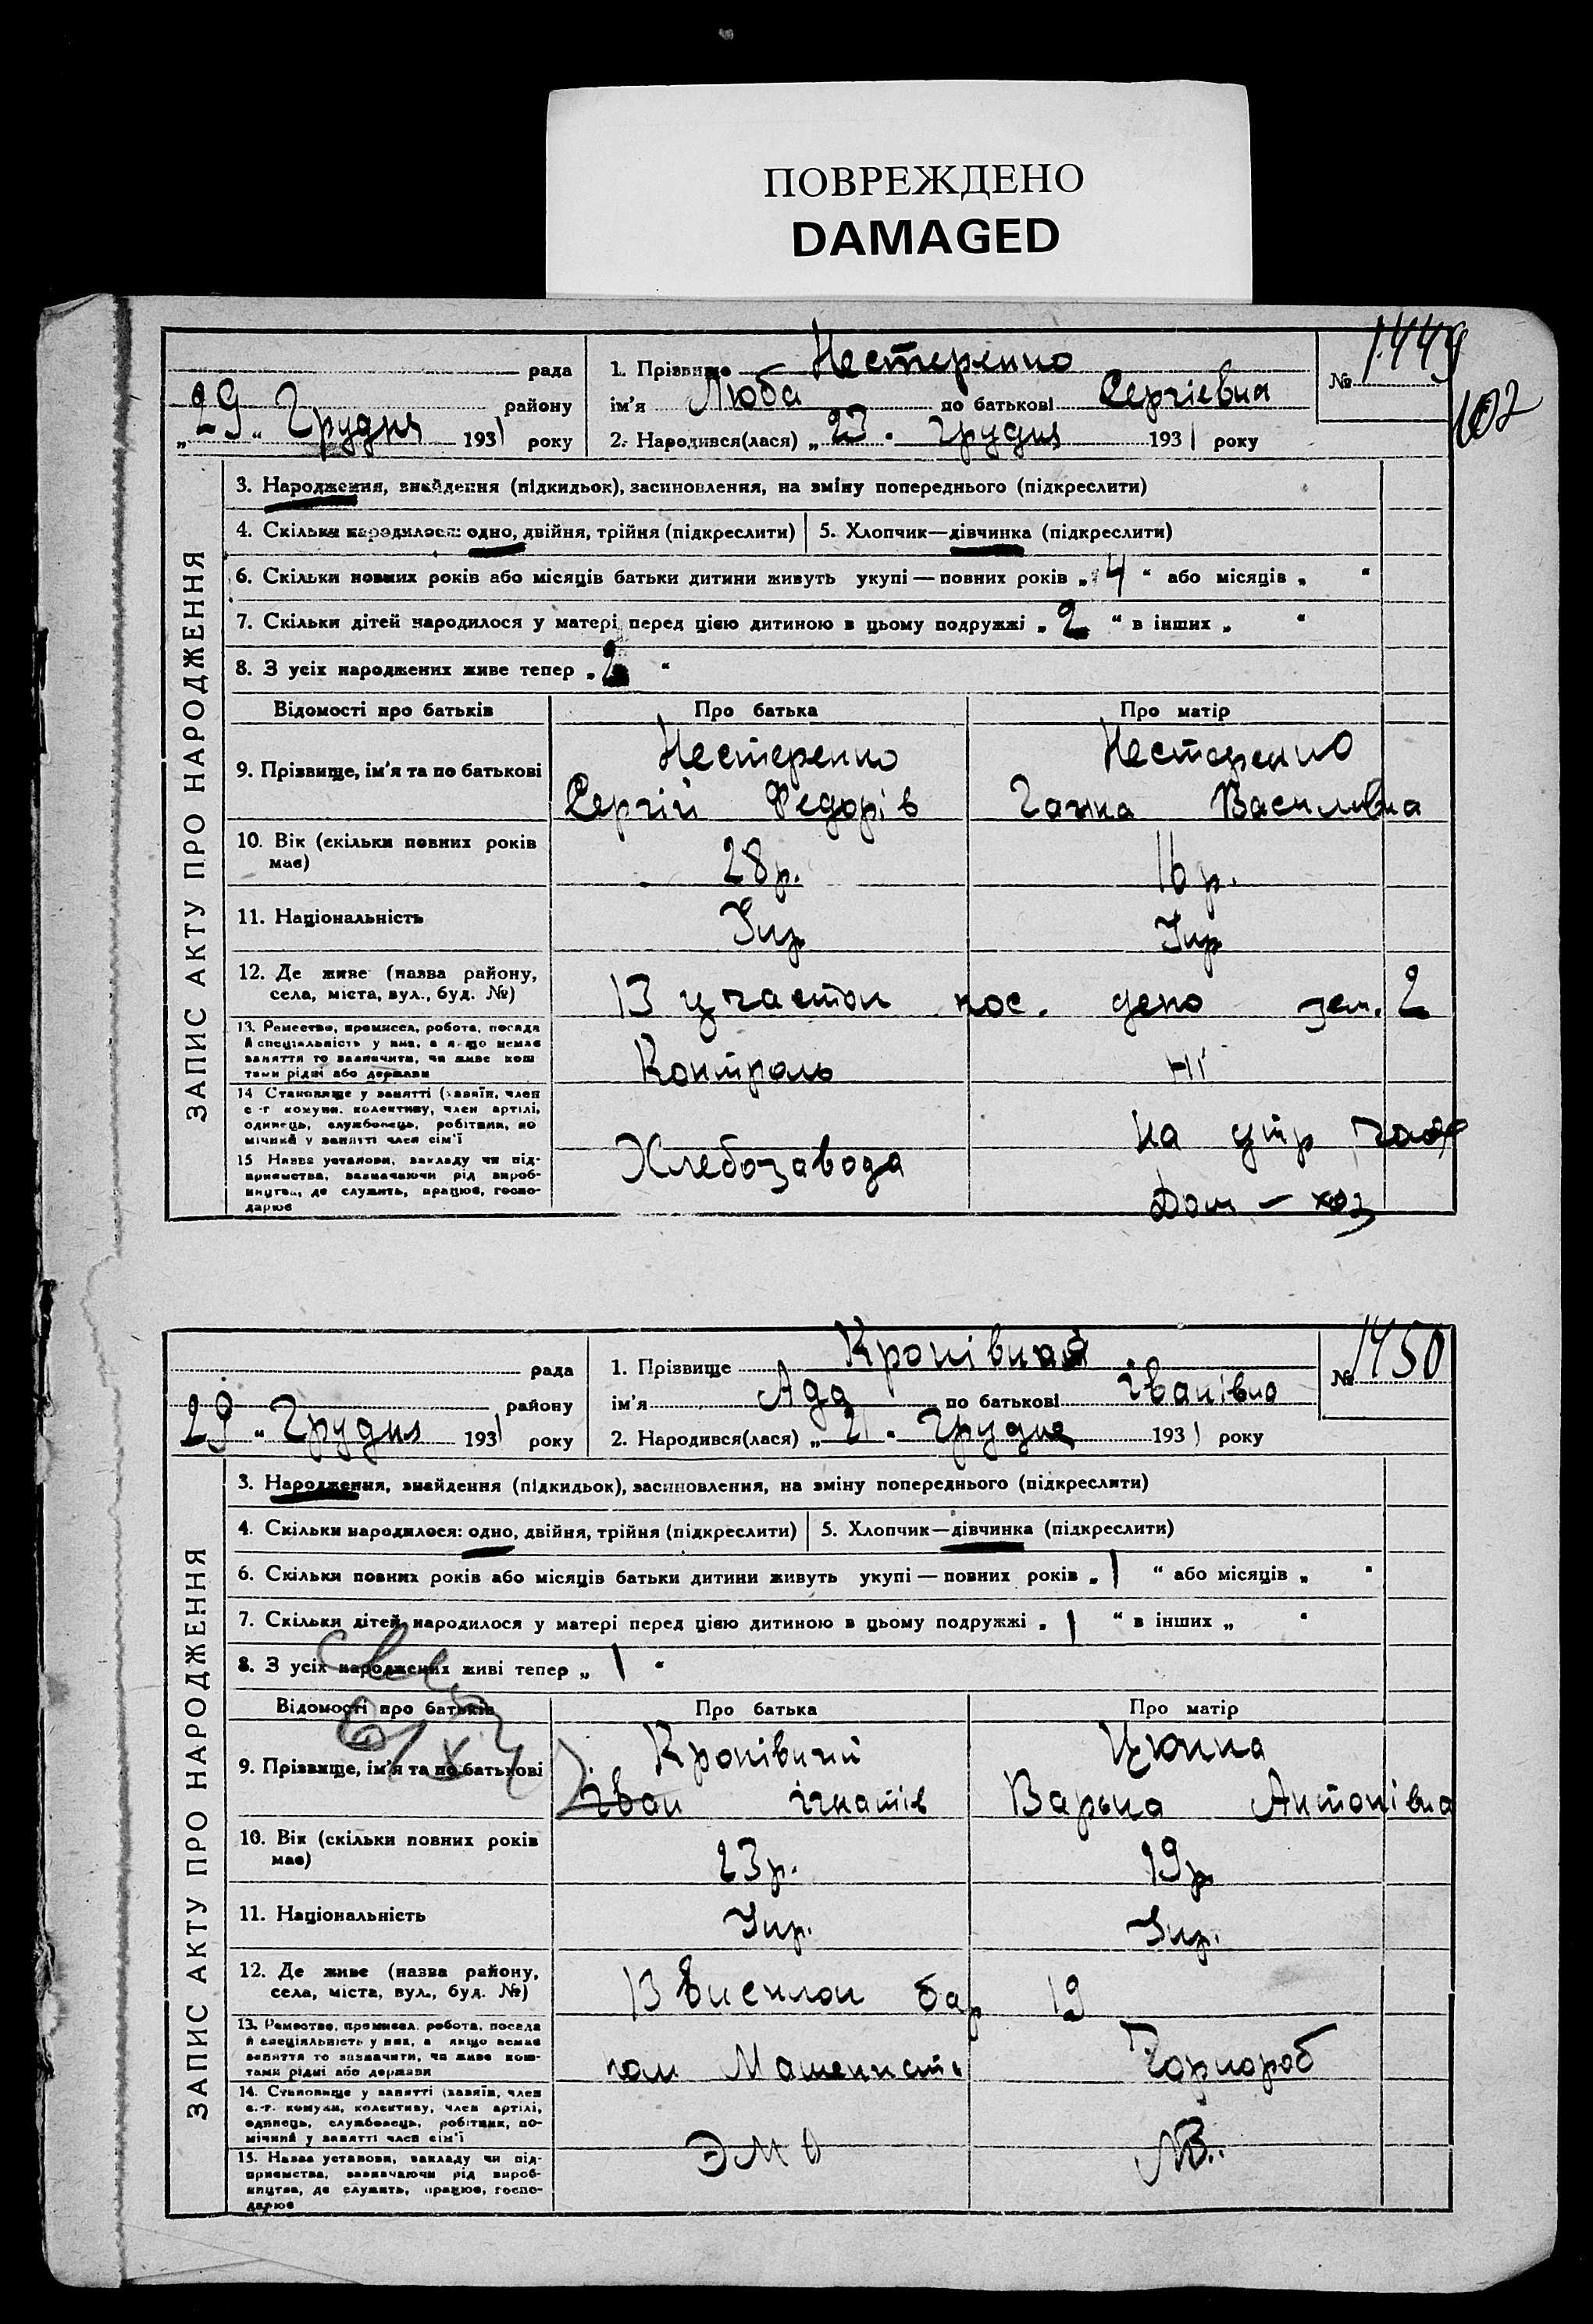 ПОВРЕЖДЕНО
DAMAGED
рада
1. Прізвище Нестеренко
№ 1449
102
району
ім'я Люба по батькові Сергіевна
„29“ Грудня 1931 року
2. Народився(лася) „23“ грудня 1931 року
ЗАПИС АКТУ ПРО НАРОДЖЕННЯ
3. Народження, знайдення (підкидьок), засиновлення, на зміну попереднього (підкреслити)
4. Скільки народилося: одно, двійня, трійня (підкреслити) 5. Хлопчик—дівчинка (підкреслити)
6. Скільки повних років або місяців батьки дитини живуть укупі—повних років „4“ або місяців „ “
7. Скільки дітей народилося у матері перед цією дитиною в цьому подружжі „2“ в інших „ “
8. З усіх народжених живе тепер „2“
Відомості про батьків Про батька Про матір
9. Прізвище, ім'я та по батькові
Нестеренко Нестеренко
Сергій Федорів Ганна Василівна
10. Вік (скільки повних років має)
28р. 16 р.
11. Національність
Укр Укр
12. Де живе (назва району, села, міста, вул., буд. №)
13 участок пос. депо зем. 2
13. Ремество, промисел, робота, посада й спеціяльність у яка, а якщо немає заняття то зазначити, чи живе коштами рідні або держави
Контроль Ні
14 Становище у занятті (хазяїн, член с.-г комуни, колективу, член артілі, одинець, службовець, робітник, помічний у занятті член сім'ї
На утр
15 Назва установи, закладу чи підприємства, зазначаючи рід виробництва, де служить, працює, господарює
Хлебозавода Дом – хоз
рада
1. Прізвище Кропівная
№ 1450
району
ім'я Ада по батькові Іванівна
29“ Грудня 1931 року
2. Народився(лася) „21“ Грудня 1931 року
ЗАПИС АКТУ ПРО НАРОДЖЕННЯ
3. Народження, знайдення (підкидьок), засиновлення, на зміну попереднього (підкреслити)
4. Скільки народилося: одно, двійня, трійня (підкреслити) 5. Хлопчик—дівчинка (підкреслити)
6. Скільки повних років або місяців батьки дитини живуть укупі—повних років „1“ або місяців „ “
7. Скільки дітей народилося у матері перед цією дитиною в цьому подружжі „1“ в інших „ “
8. З усіх народжених живі тепер „1“
Відомості про батьків Про батька Про матір
9. Прізвище, ім'я та по батькові
Кропівний
Іван Ігнатів Варька Антонівна
10. Вік (скільки повних років має)
23р. 19р
11. Національність
Укр. Укр.
12. Де живе (назва району, села, міста, вул., буд. №)
бар 19
13. Ремество, промисел, робота, посада й спеціяльність у яка, а якщо немає заняття то зазначити, чи живе коштами рідні або держави
пом Чорнороб
14. Становище у занятті (хазяїн, член с.-г. комуни, колективу, член артілі, одинець, службовець, робітник, помічний у занятті член сім'ї
15. Назва установи, закладу чи підприємства, зазначаючи рід виробництва, де служить, працює, господарює